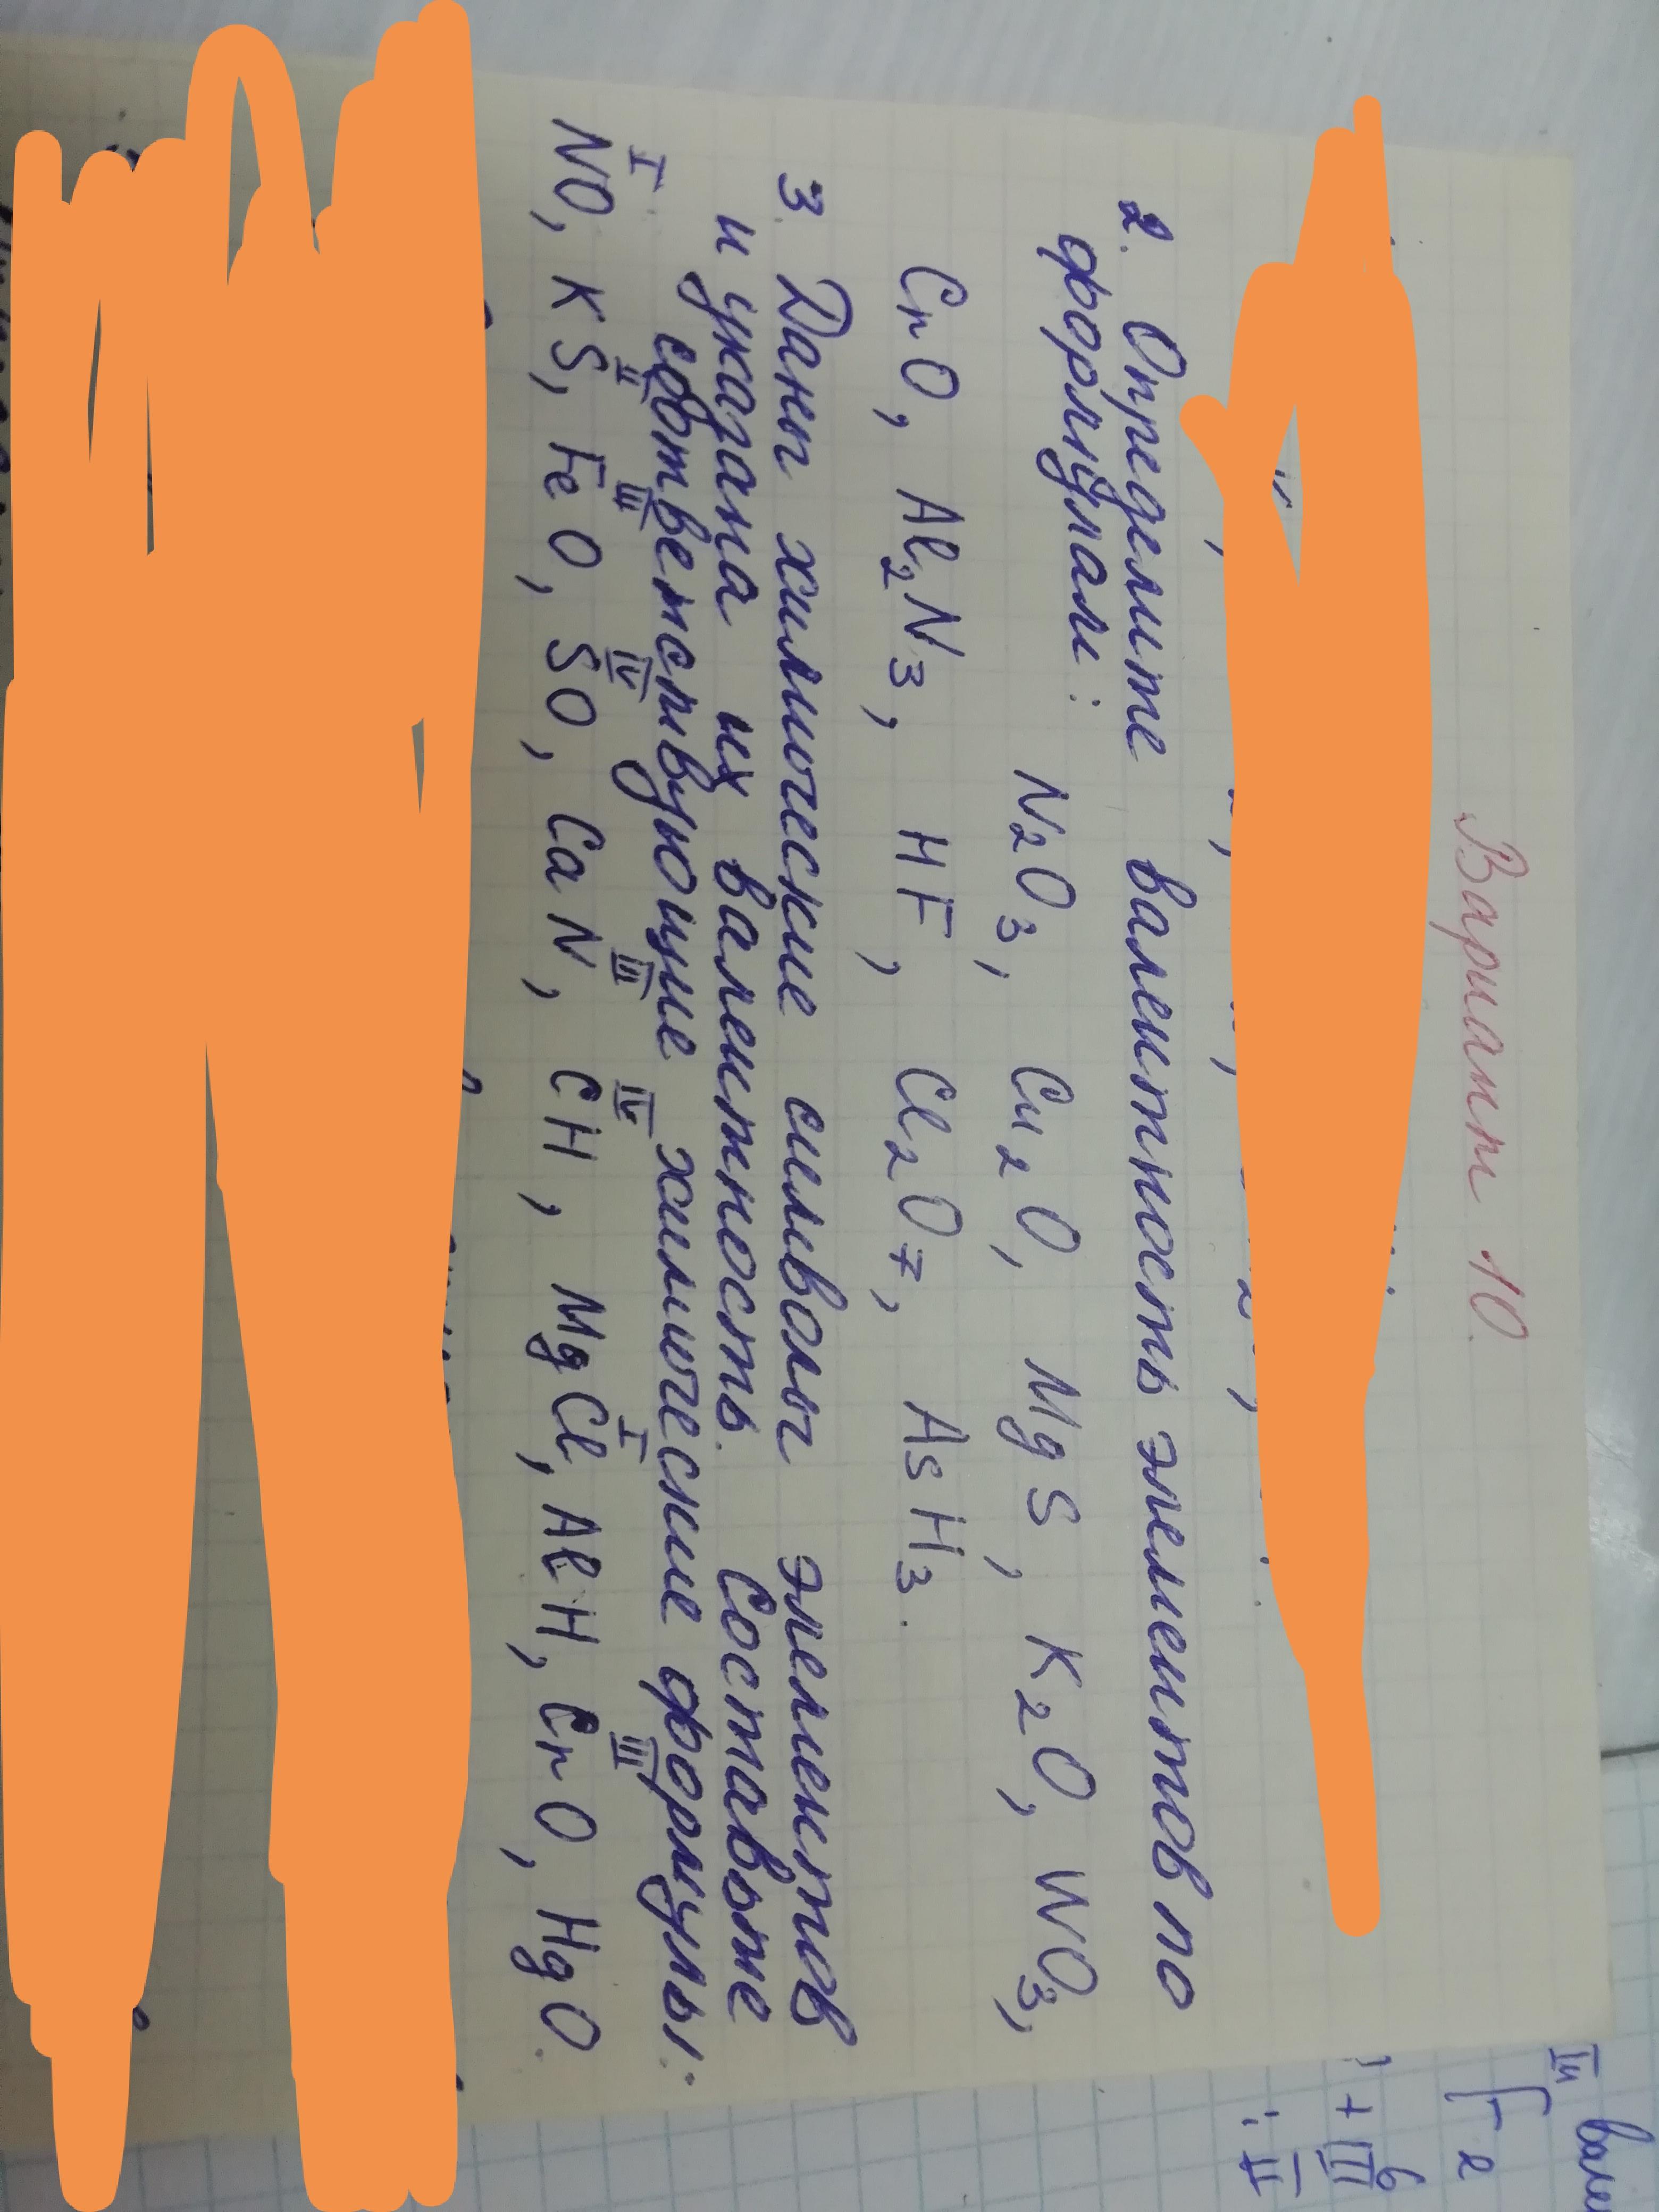 Вариант 10.
2. Определите валентность элементов по
формулам: N₂O₃, Cu₂O, MgS, K₂O, WO₃,
CrO, Al₂N₃, HF, Cl₂O₇, AsH₃.
3. Даны химические символы элементов
и указана их валентность. Составьте
соответствующие химические формулы:
I II III IV III IV I III
NO, KS, FeO, SO, CaN, CH, MgCl, AlH, CrO, HgO.